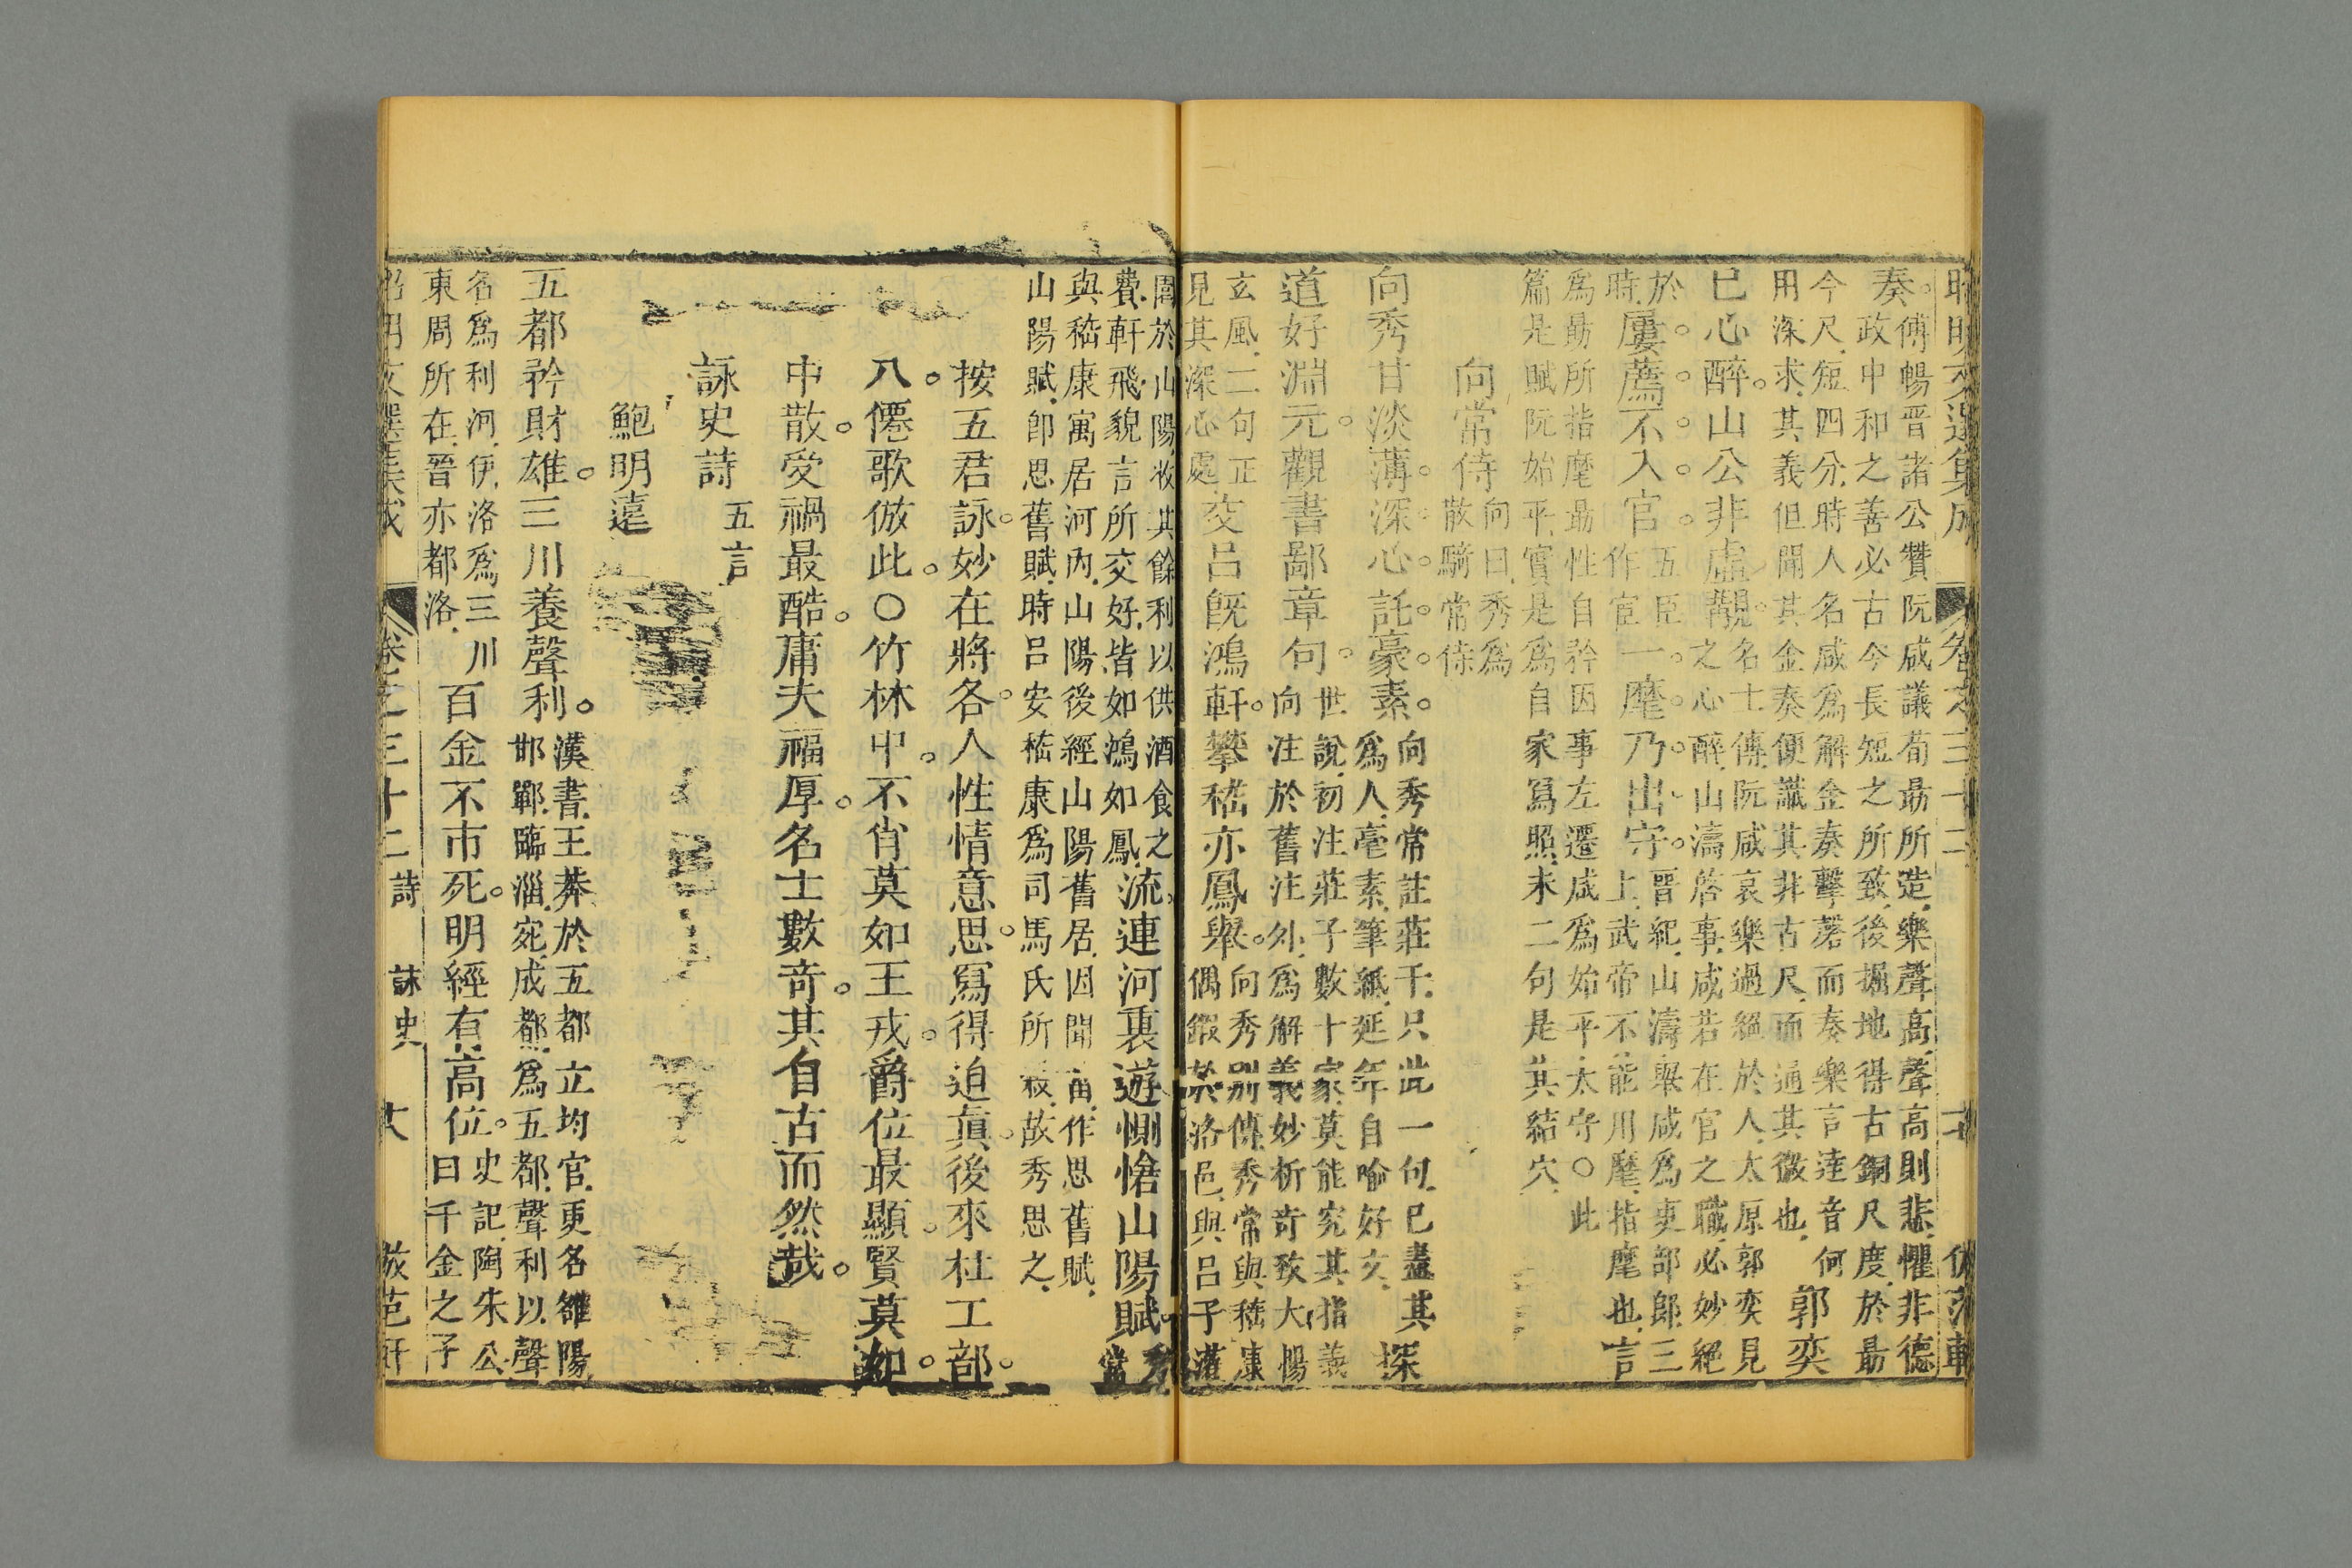 奏。傅暢晉諸公贊阮咸議荀勗所造樂聲高聲高則悲懼非德
政中和之善必古今長短之所致後掘地得古銅尺度於勗
今尺短四分時人名咸爲解金奏擊磬而奏樂言達音何
用深求其義但聞其金奏便讖其非古尺而通其微也 郭奕
已心醉。山公非虛覯。名士傳阮咸哀樂過絕於人太原郭奕見
之心醉山濤啓事咸若在官之職必妙絕
於時屢。薦。不。入。官。五臣作宦一。麾。乃。出。守。晉紀山濤舉咸爲吏部郎三
上武帝不能用麾指麾也言
爲勗所指麾勗性自矜因事左遷咸爲始平太守○此
篇是賦阮始平實是爲自家寫照末二句是其結穴
向常侍 向曰秀爲
散騎常侍
向秀甘淡薄。深。心。託。豪。素。向秀常註莊子只此一句已盡其
爲人毫素筆紙延年自喻好文 探
道好淵元。觀書鄙章句。世說初注莊子數十家莫能究其指義
向注於舊注外爲解義妙析奇致大暢
玄風二句正
見其深心處交呂旣鴻軒。攀嵇亦鳳舉。向秀別傳秀常與嵇康
偶鍛於洛邑與呂子灌
園於山陽收其餘利以供酒食之
費軒飛貌言所交好皆如鴻如鳳流連河裏遊惻愴山陽賦秀
常
與嵇康寓居河內山陽後經山陽舊居因聞笛作思舊賦
山陽賦卽思舊賦時呂安嵇康爲司馬氏所殺故秀思之
按五君詠。妙在將各。人性情意思。寫得迫眞。後來杜工部。
八。僊歌倣此。○竹林中。不肖莫如王戎。爵位最顯。賢莫如。
中散。受禍最酷。庸夫福厚。名士數奇。其自古而然哉。
詠史詩 五言
鮑明遠
五都矜財雄。三川養聲利。漢書王莽於五都立均官更名雒陽
邯鄲臨淄宛成都爲五都聲利以聲
名爲利河伊洛爲三川
東周所在晉亦都洛百金不市死。明經有高位。史記陶朱公
曰千金之子
卷之三十二 詩 詠史